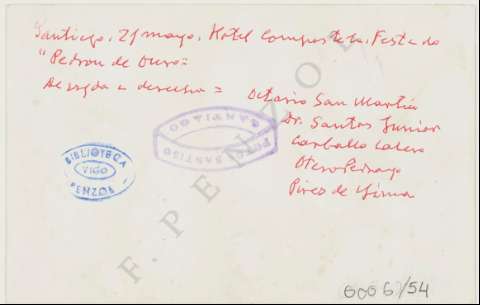 Santiago, 21 mayo, Hotel Compostela. Festa do
"Pedron de Ouro =
De izqda a derecha = Octavio San Martín
Dr. Santos Junior
Carballo Calero
Otero Pedrayo
Pires de Lima
BIBLIOTECA
VIGO
PENZOL
SANTIAGO
F. PENZOL
00067/54